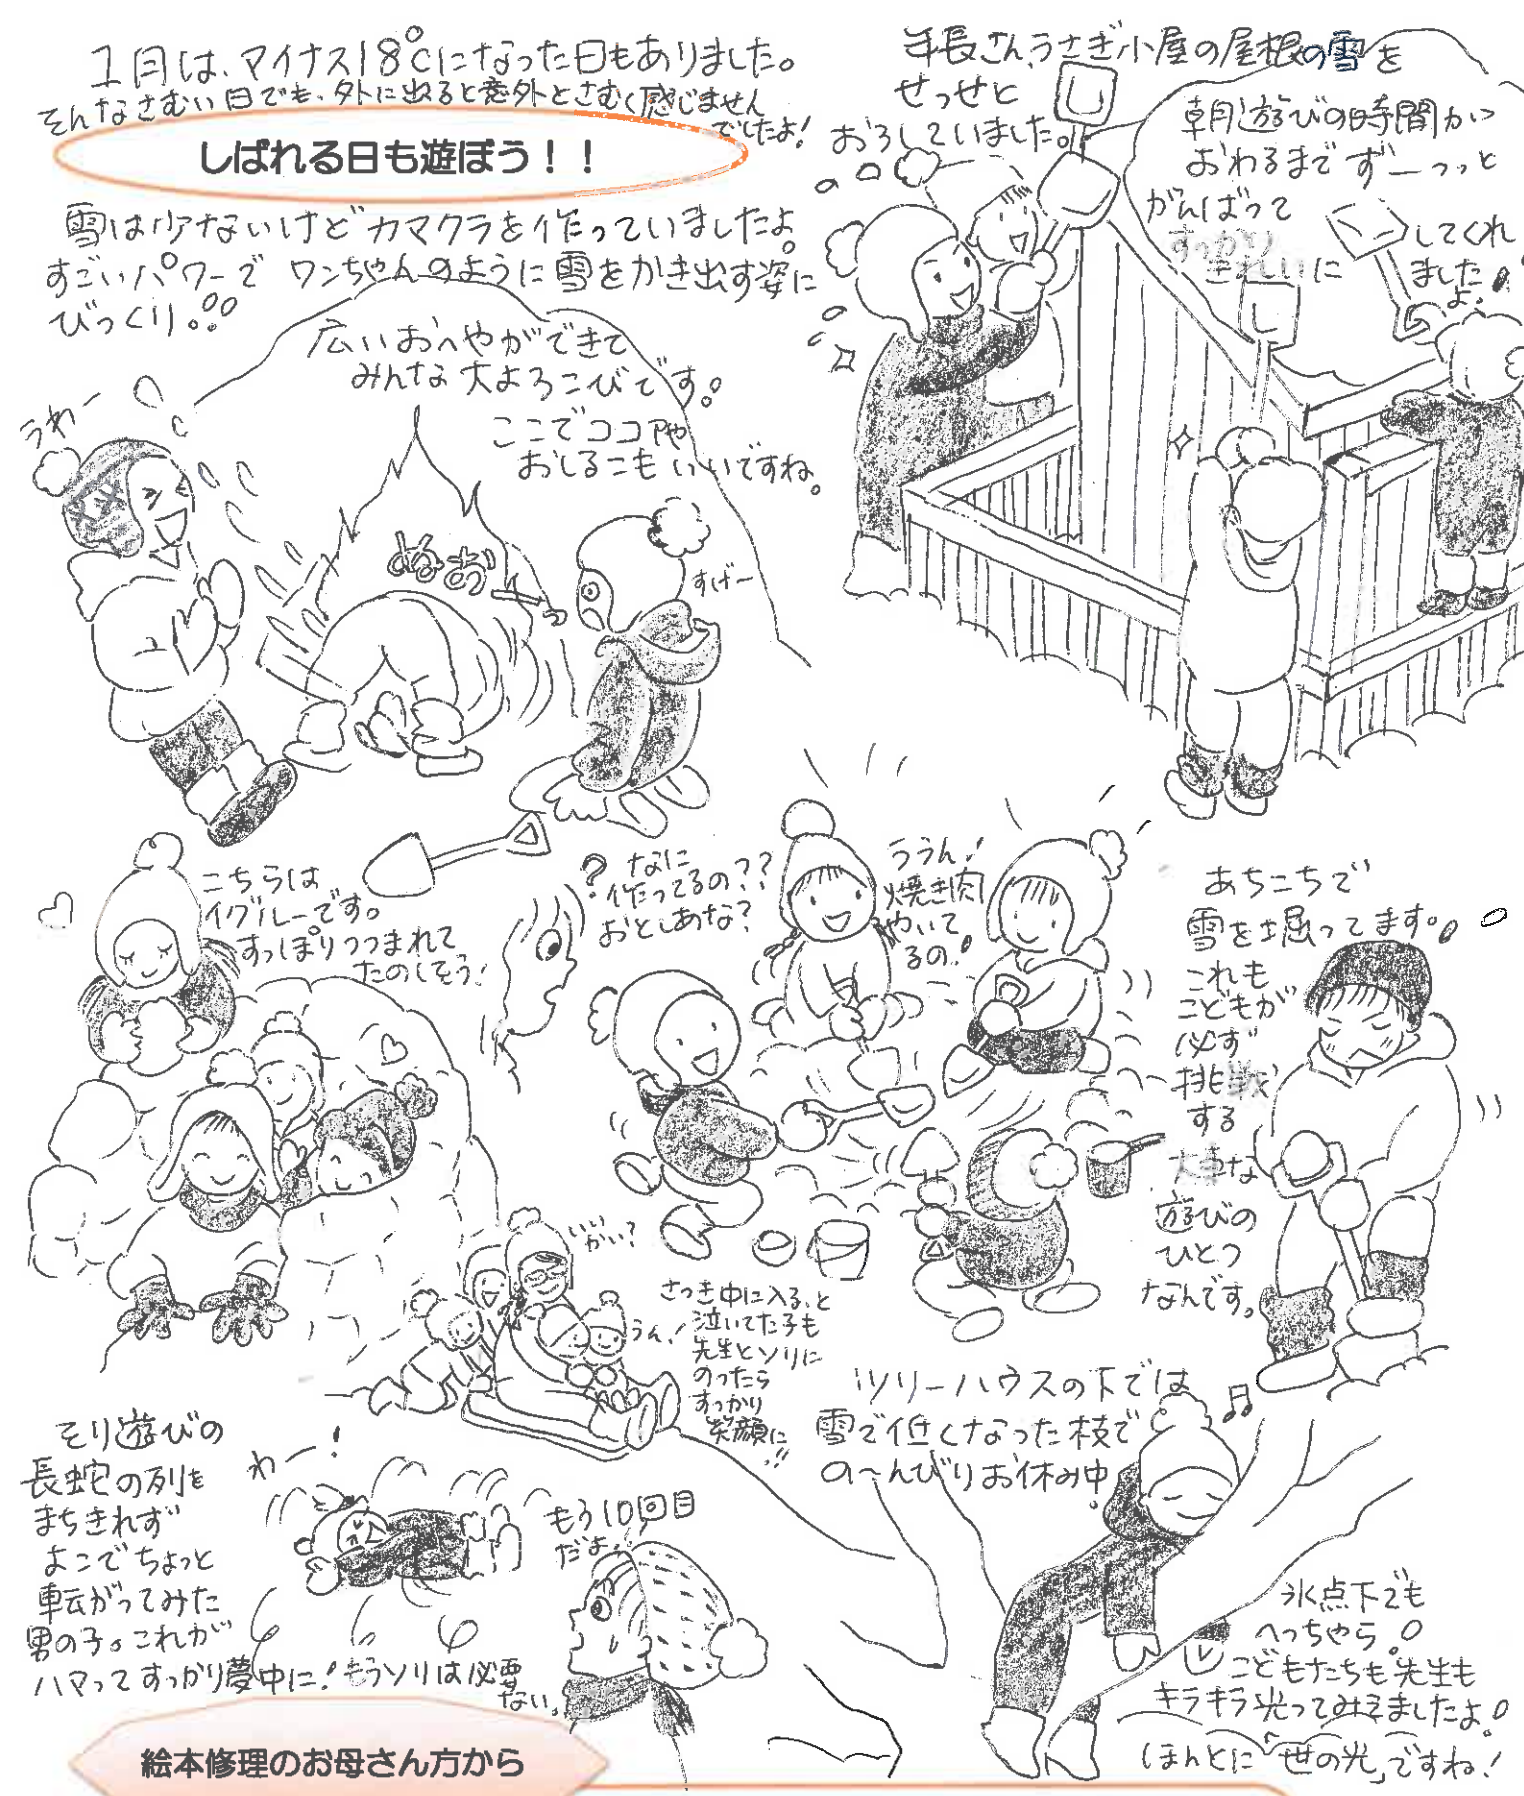 1月は、マイナス18℃になった日もありました。
そんなさむい日でも、外に出ると意外とさむく感じません
でしたよ!
しばれる日も遊ぼう！！
雪は少ないけどカマクラを作っていましたよ。
すごいパワーで ワンちゃんのように雪をかき出す姿に
びっくり!!!
広いおへやができて
みんな大よろこびです!
ここでココアや
おしるこもいいですね。
うわー
ぬお
すげー
年長さん、うさぎ小屋の屋根の雪を
せっせと
おろしていました。
朝遊びの時間が
おわるまでずーっっと
がんばって
すっかり
きれいに
してくれ
ました
よ!
こちらは
イグルーです。
すっぽりつつまれて
たのしそう!
?なに
作ってるの??
おとしあな?
ううん!
焼き肉
やいて
るの!
あちこちで
雪を堀ってます!
これも
こどもが
必ず
挑戦
する
大事な
遊びの
ひとつ
なんです。
いいかい?
うん!
さっき中に入る、と
泣いてた子も
先生とソリに
のったら
すっかり
笑顔に!!
そり遊びの
長蛇の列を
まちきれず
よこでちょっと
転がってみた
男の子。これが
ハマってすっかり夢中に! もうソリは必要
ない。
わー!
もう10回目
だよ
ツリーハウスの下では
雪で低くなった枝で
の～んびりお休み中
氷点下でも
へっちゃら!
こどもたちも先生も
キラキラ光ってみえましたよ!
ほんとに「世の光」ですね!
絵本修理のお母さん方から